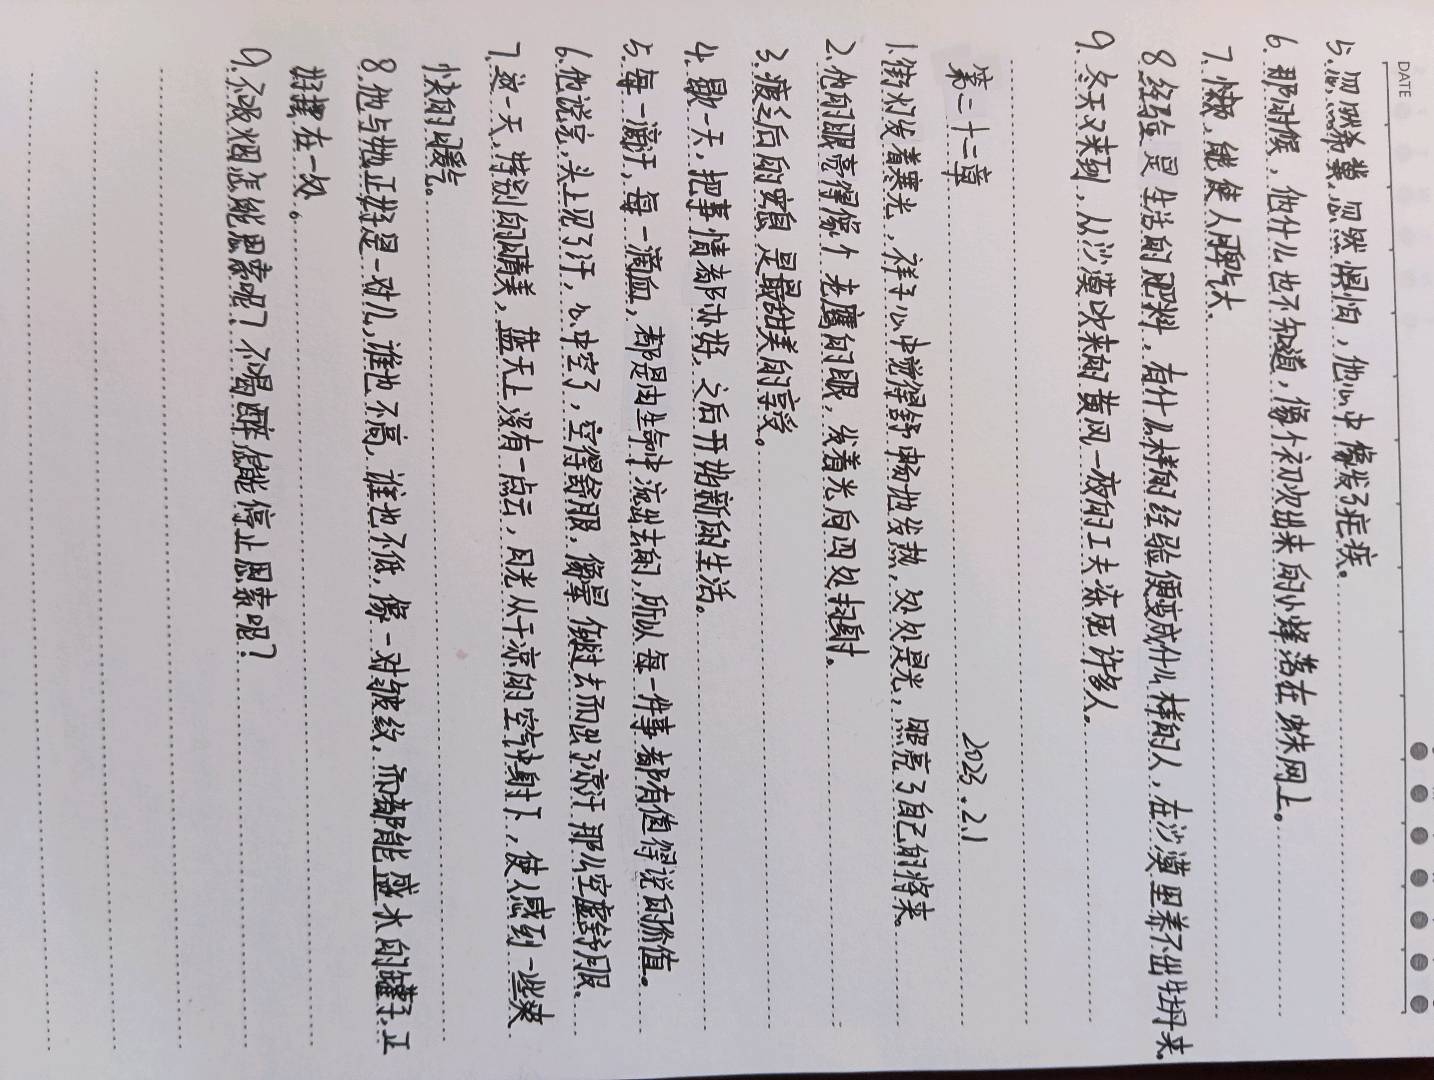 DATE
5.忽而希冀,忽然惧怕,他心中像发了疟疾。
6.那时候,他什么也不知道,像个初次出来的小蜂落在蛛网上。
7.懒,能使人脾气大。
8.经验是生活的肥料,有什么样的经验便变成什么样的人,在沙漠里养不出牡丹来。
9.冬天又来到,从沙漠吹来的黄风一夜的工夫冻死许多人。
第二十二章 2023.2.1
1.街灯发着寒光,祥子心中觉得舒畅地发热,处处是光,照亮了自己的将来。
2.他的眼亮得像个老鹰的眼,发着光向四处扫射。
3.疲乏后的安息是最甜美的享受。
4.歇一天,把事情都办好,之后开始新的生活。
5.每一滴汗,每一滴血,都是由生命中流出去的,所以每一件事都有值得说的价值。
6.他说完,头上见了汗,心中空了,空得舒服,像晕倒过去而出了凉汗那么空虚舒服.
7.这一天,特别的晴美,蓝天上没有一点云,日光从干凉的空气中射下,使人感到一些爽
快的暖气。
8.他与她正好是一对儿,谁也不高,谁也不低,像一对都有破纹,而都能盛水的罐子,正
好摆在一处。
9.不吸烟怎能思索呢?不喝醉怎能停止思索呢?